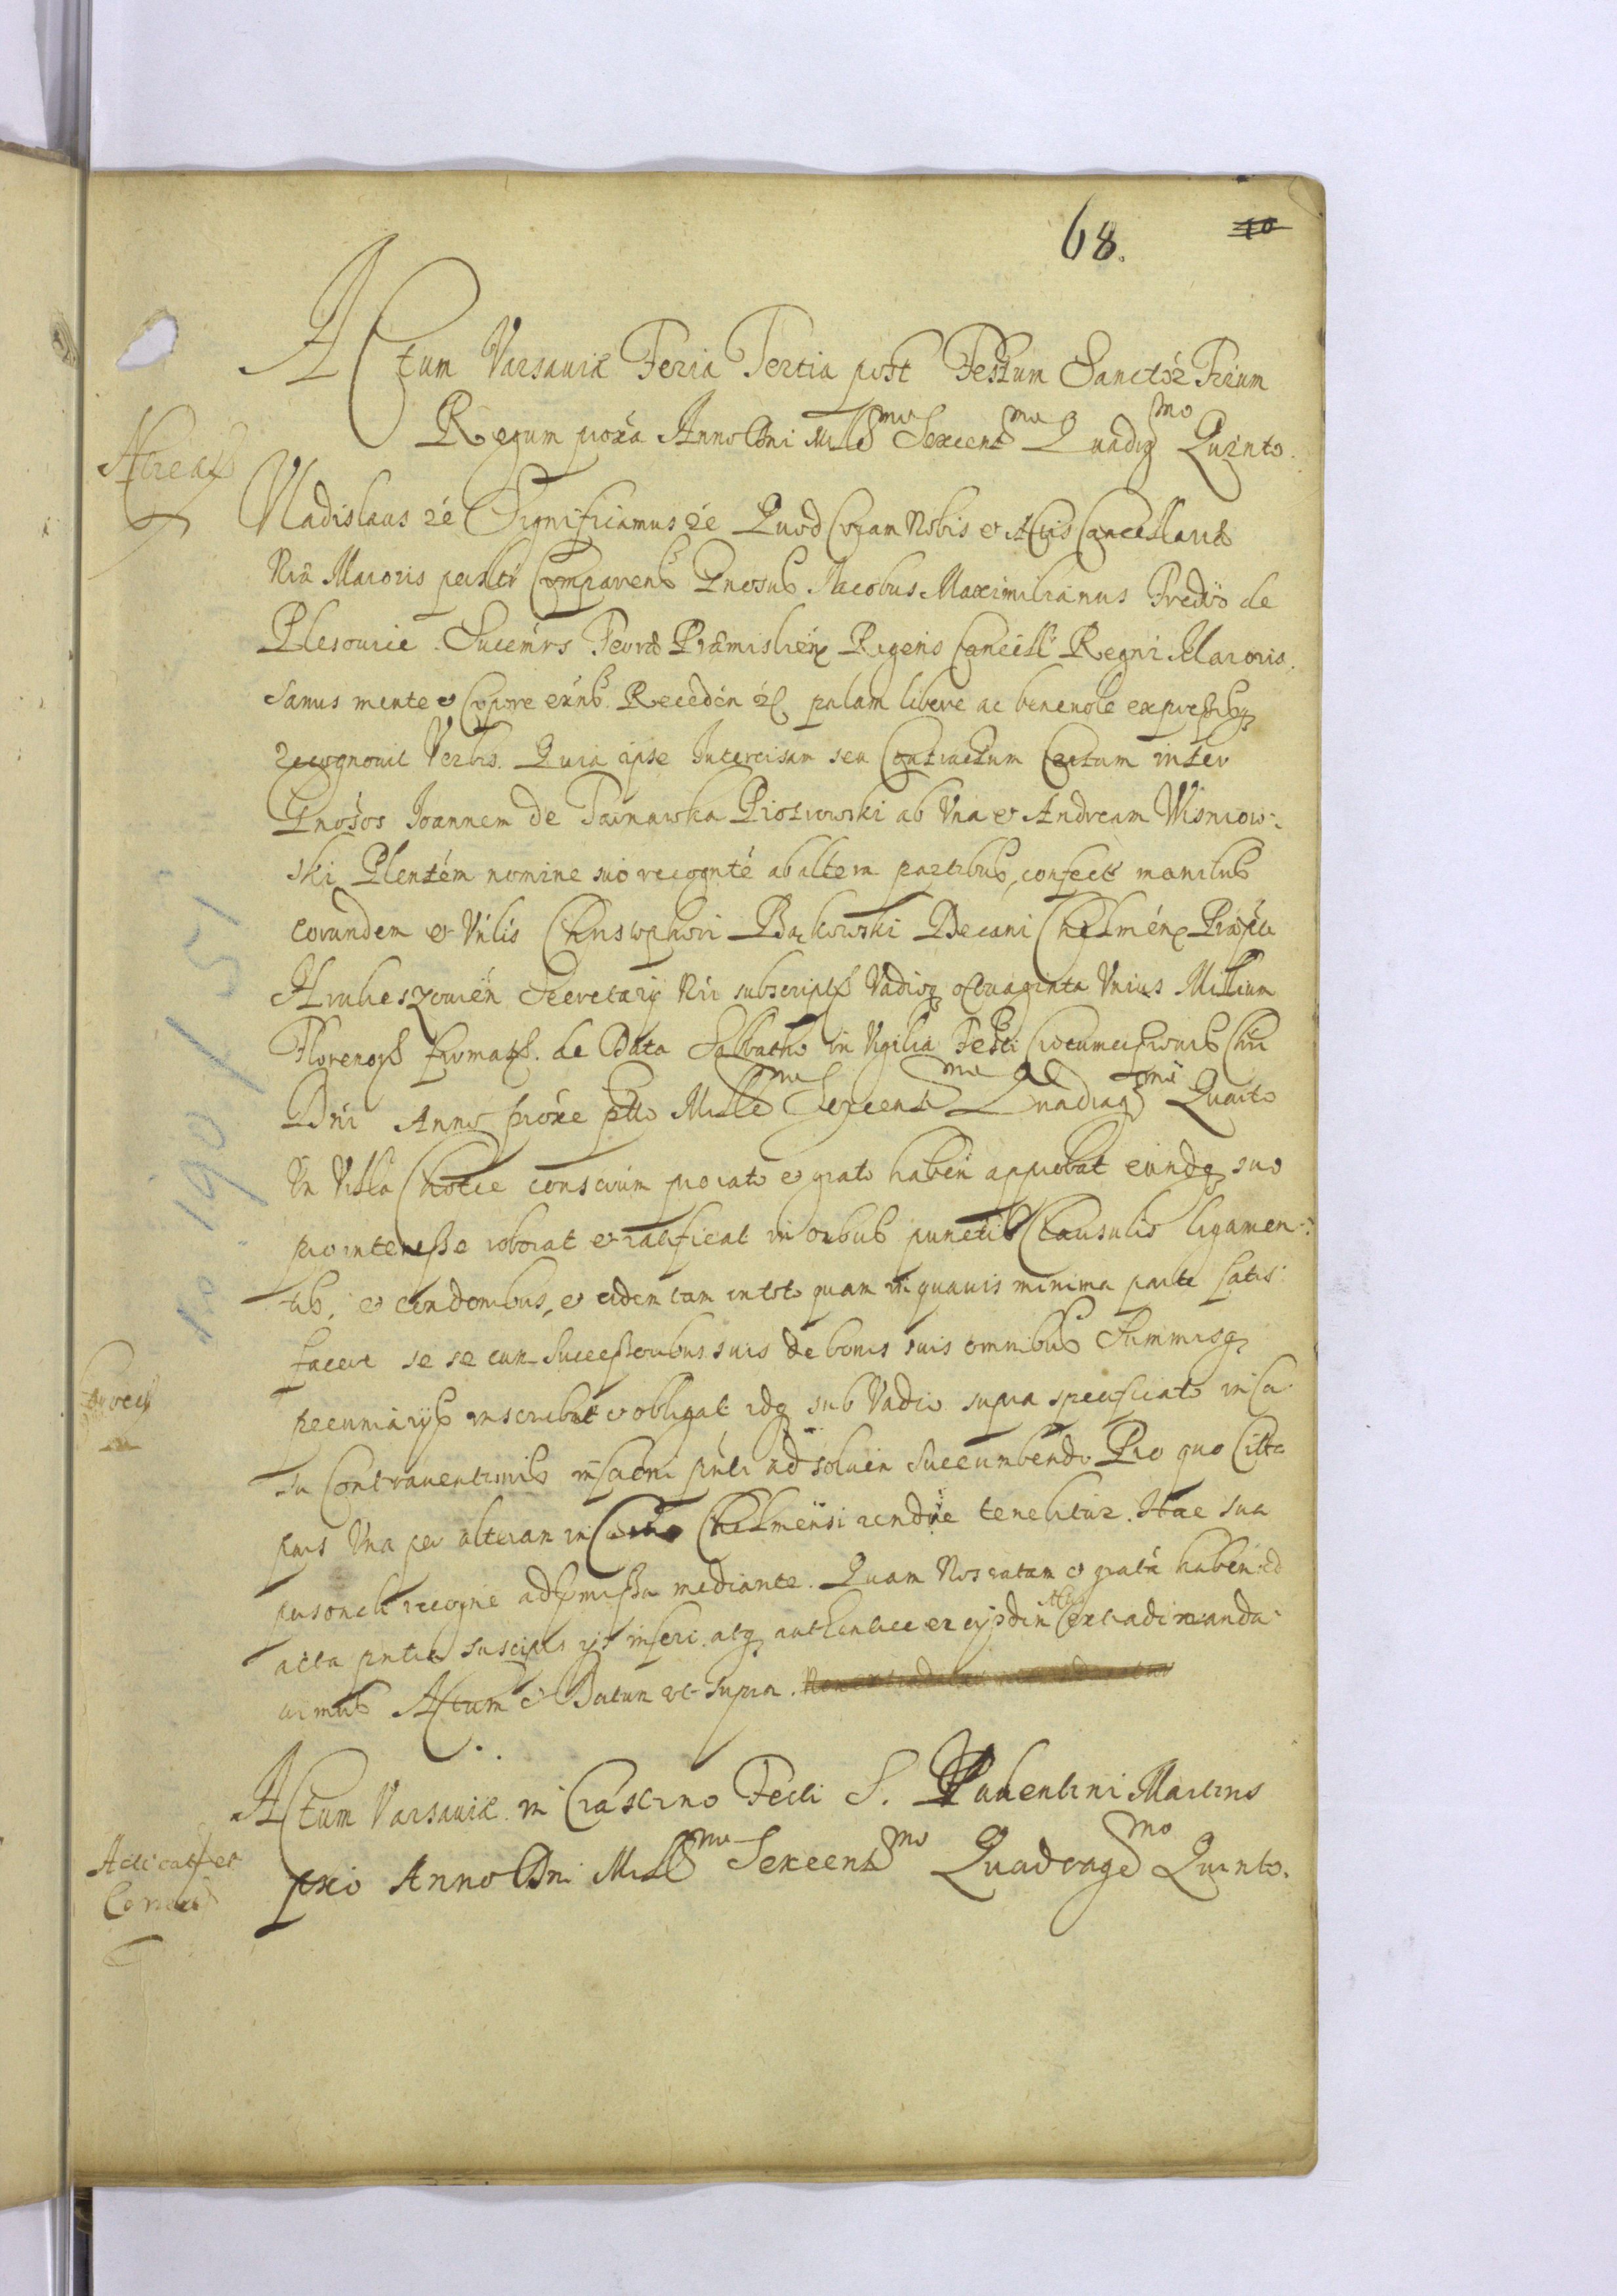 68.
10
Actum Varsaviæ Feria Tertia post Festum Sanctor Trium
Regum proxa Anno Dni Mille̅mo Sexcent̅mo Quadrig̅mo Quinto.
Vladislaus etc Significamus etc Quod Coram Nobis et Actis Cancellariæ
Nræ Maioris Comparens Gnosus Jacobus Maximilianus Fredro de
Plesouice Succmrs Terræ Præmislien Regens Cancell Regni Maioris
sanus mente et Corpore exns Receden etc palam libere ac beneuole expressisq
recognouit Verbis. Quia ipse Intercisam seu Contractum Certum inter
Gnosos Joannem de Tarnawka Piotrowski ab Vna et Andream Wisniow-
ski Plentem nomine suo recognte ab altera partibus, confect manibus
eorundem et Vnlis Christophori Bąkowski Decani Chelmen Præpti
Hrubieszouien Secretarij Nri subscript Vadioq octuaginta Vnius Millium
Florenor firmat. de Data Sabbatho in Vigilia Festi Circumcisionis Chri
Dni Anno proxe ptto Mille̅mo Sexcent̅mo Quadrag̅mo Quarto
In Villa conscrium pro rato et grato haben approbat eundq suo
pro interesse roborat et ratificat in oibus punctis Clausulis ligamen-
tis, et condonibus, et eidem tam in toto quam in quauis minima parte satis
facere se se cum Successoribus suis de bonis suis omnibus Summisq
pecuniarijs inscribit et obligat idq sub Vadio supra specificato in ca-
su Contrauentionis inscrtni pnti ad soluen succumbendo Pro quo Citta
pars Vna per alteram in Chelmensi rendre tenebitur. Hac sua
personali recogne ad præmissa mediante. Quam Nos ratam et gratã haben ad
acta pntia suscipi ijs inseri atq authentice ex eijsdem Actis extradi manda-
uimus Actum et Datum ut supra.
Actum Varsauiæ in Crastino Festi S. Valentini Martiris
pxi Anno Dni Mill̅mo Sexcent̅mo Quadrage̅mo Quinto.
Correct
Acticat et
Correct
190/51